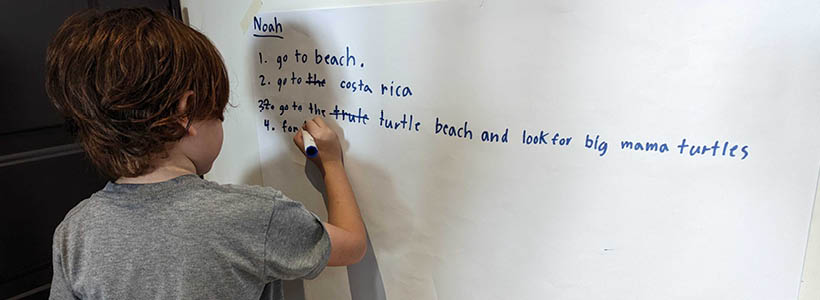 Noah
1. go to beach.
2. go to the costa rica
3. go to the trute turtle beach and look for big mama turtles
4. for